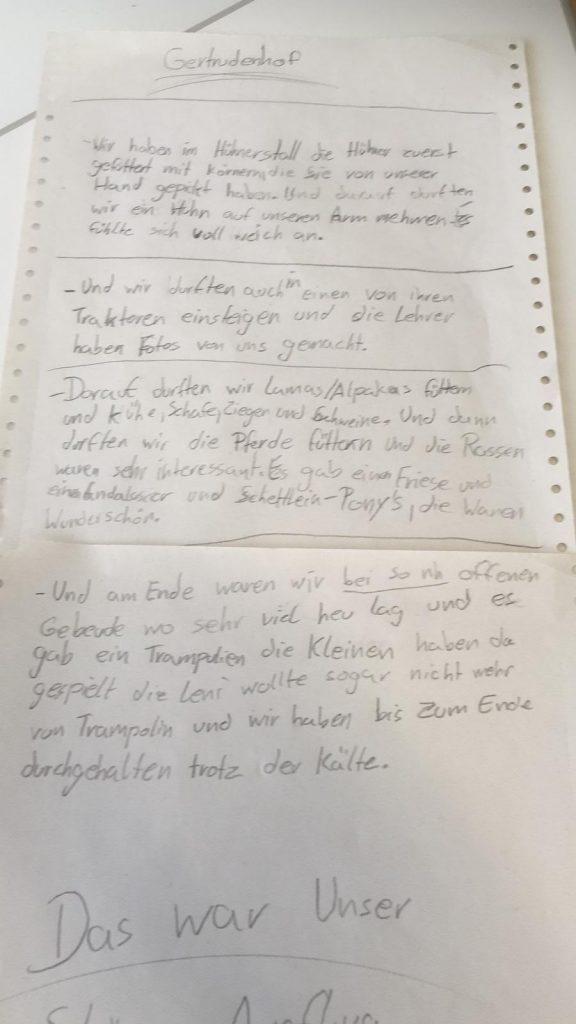 Gertrudenhof
- Wir haben im Hühnerstall die Hühner zuerst
gefüttert mit körnern, die sie von unserer
Hand gepickt haben. Und darauf durften
wir ein Huhn auf unseren Arm nehmen es
fühlte sich voll weich an.
- Und wir durften auch in einen von ihren
Traktoren einsteigen und die Lehrer
haben Fotos von uns gemacht.
- Darauf durften wir Lamas/Alpakas füttern
und Kühe, Schafe, Ziegen und Schweine. Und dann
durften wir die Pferde füttern und die Rassen
waren sehr interessant. Es gab einen Friese und
eine Andalusier und Schettlein-Pony's, die Waren
Wunderschön.
- Und am Ende waren wir bei so nh offenen
Gebeude wo sehr viel heu lag und es
gab ein Trampolien die Kleinen haben da
gespielt die Leni wollte sogar nicht mehr
von Trampolin und wir haben bis zum Ende
durchgehalten trotz der Kälte.
Das war Unser
Ausflug